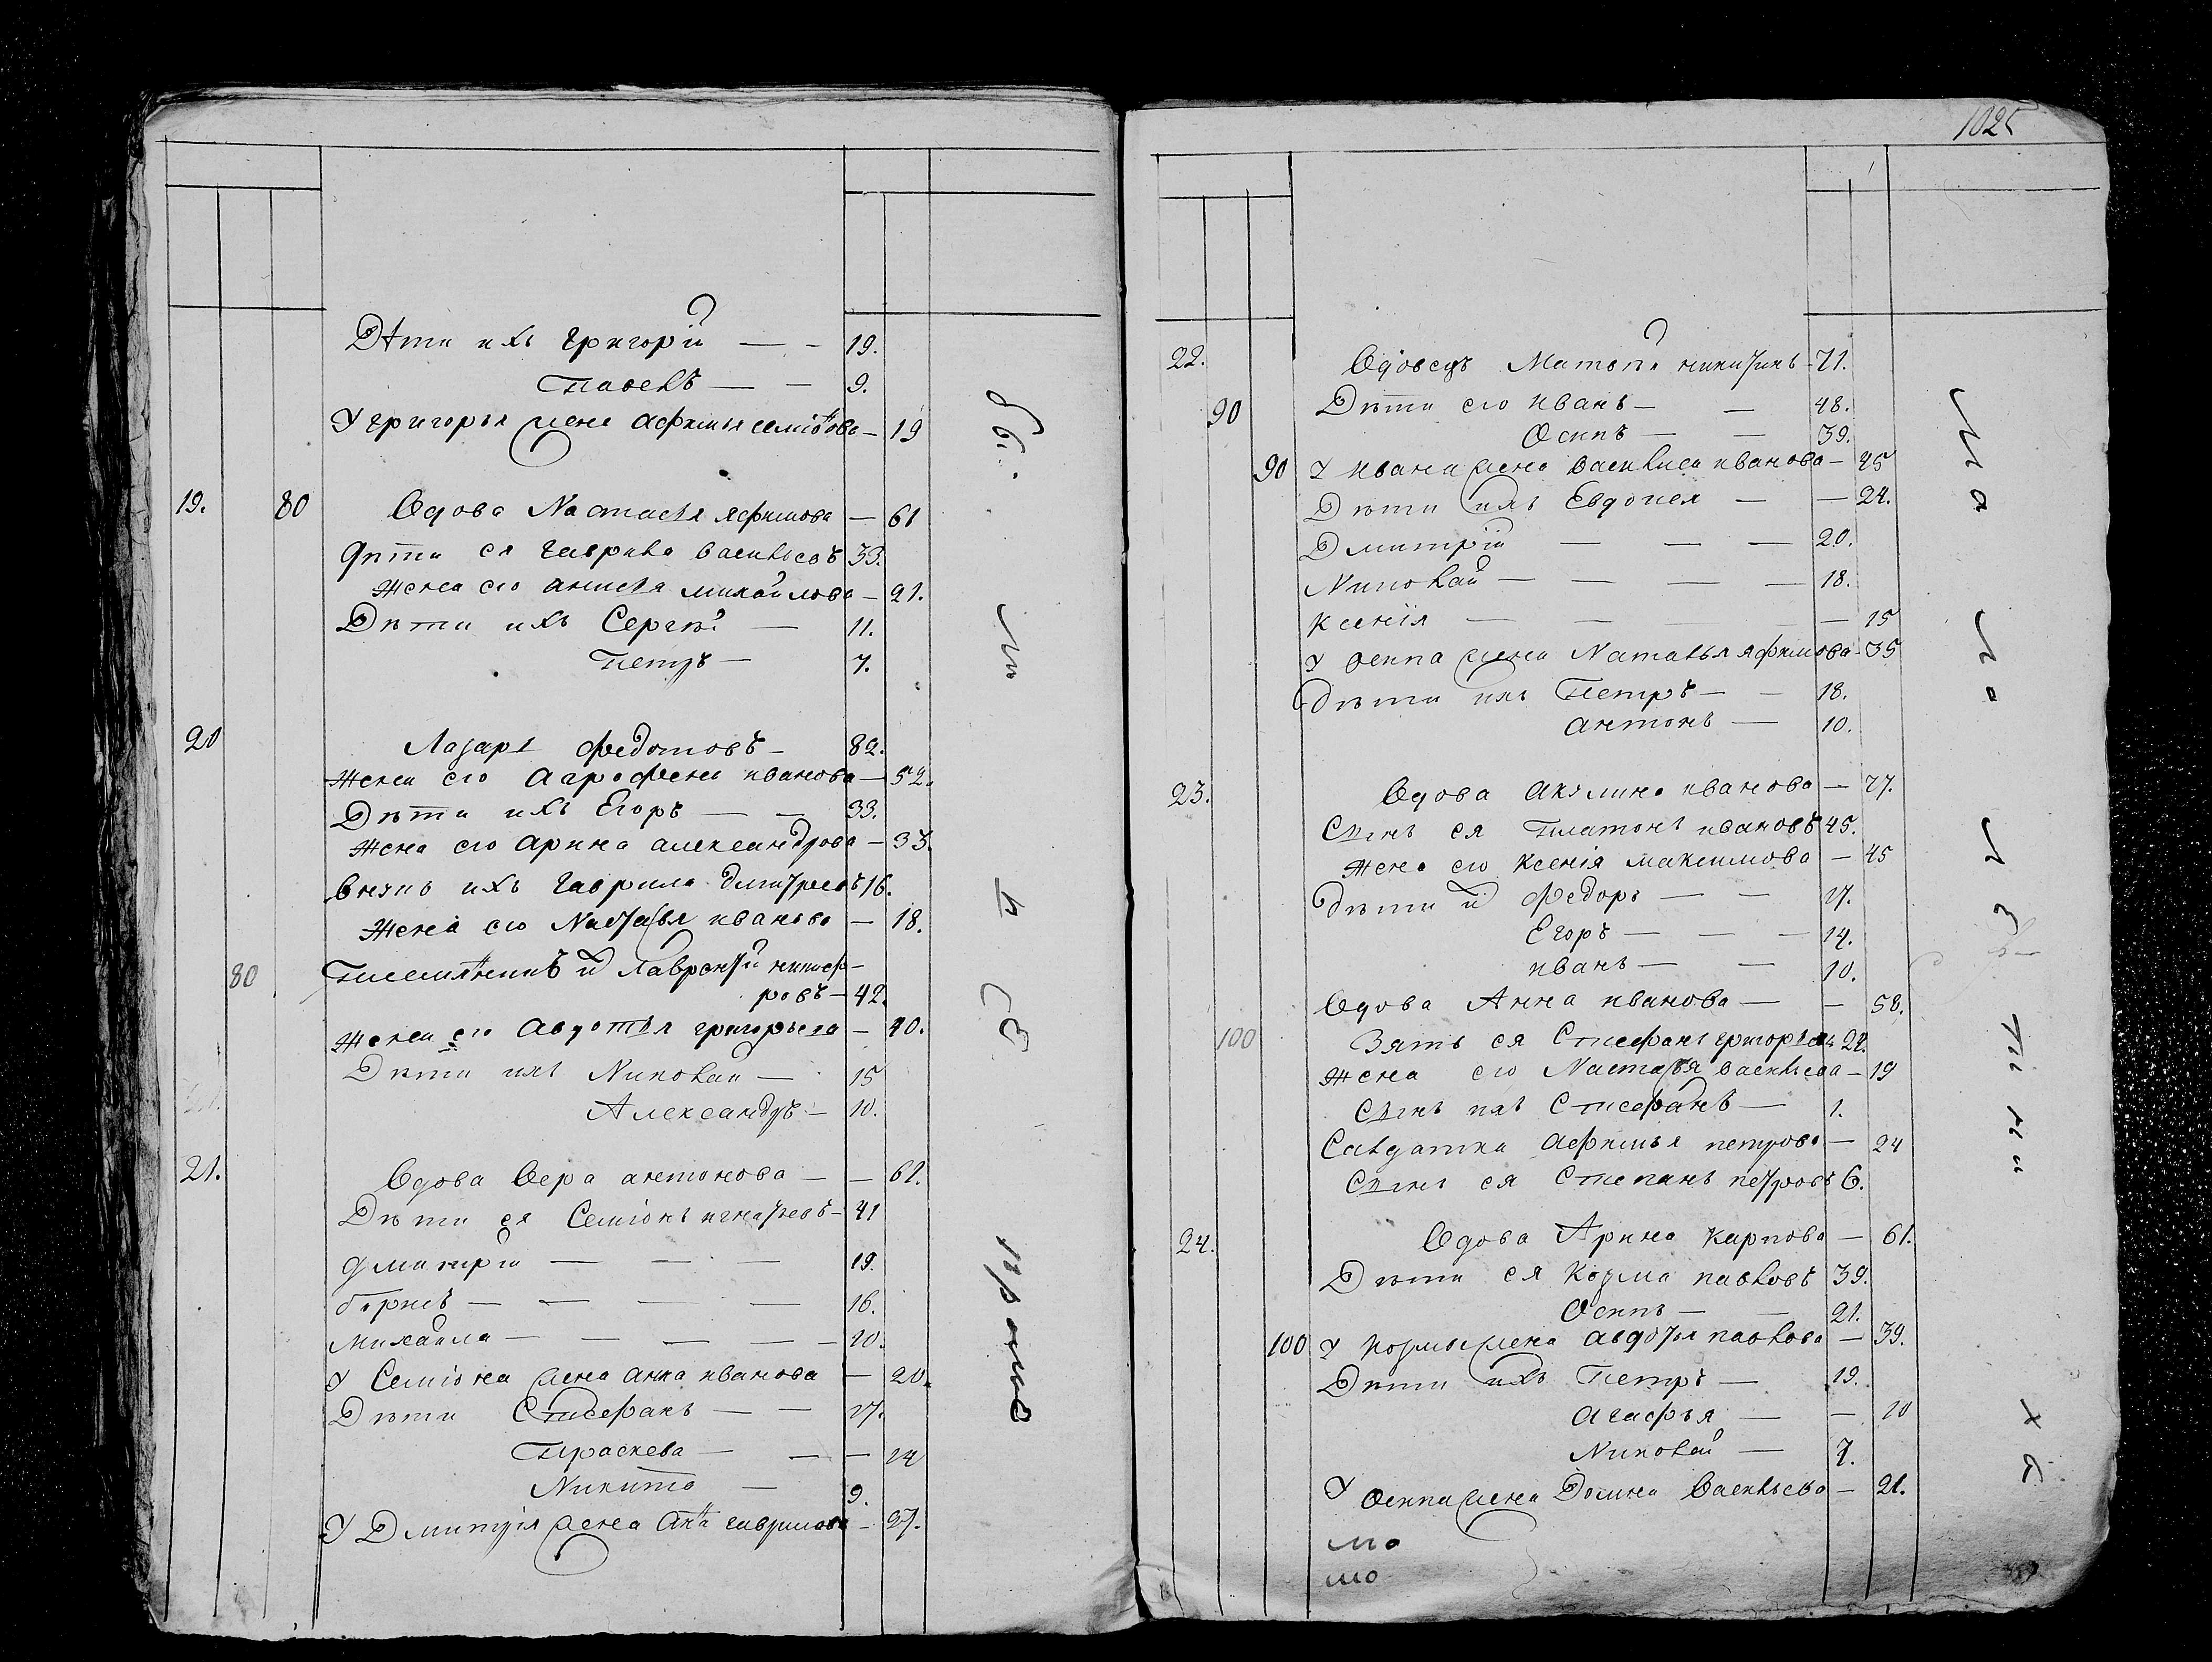 Дѣти ихъ Григорiй — — 19.
Павелъ — — 9.
У Григорья жена Афимья Семiонова — 19
19. 80 Вдова Настасья Яфимова — 61
Дѣти ея Гаврила Васильевъ 33.
Жена его Анисья Михайлова — 21.
Дѣти ихъ Сергѣй — 11.
Петръ — 7.
20 Лазарь Федотовъ — 82.
Жена его Аграфена Иванова — 52.
Дѣти ихъ Егоръ — — 33.
Жена его Арина Александрова — 33.
Внукъ ихъ Гаврила Дмитревъ 16.
Жена его Настасья Иванова — 18.
80 Племянникъ Лаврентiй Никифо-
ровъ — 42.
Жена его Авдотья Григорьева — 40.
Дѣти ихъ Николай — 15
Александръ — 10.
21. Вдова Вера Антонова — — 61.
Дѣти ея Семiонъ Игнатьевъ — 41
Дмитрiй — — — 19.
Борисъ — — — — 16.
Михайла — — — — — 10.
У Семiона жена Анна Иванова — 20.
Дѣти Стефанъ — — 17.
Прасковя — — — 14
Никита — 9.
У Дмитрiя жена Гаврилова — 27.
1025
22. Вдовецъ Матвей Никитинъ — 71.
90 Дѣти его Иванъ — — 48.
Осипъ — — 39.
90 У Ивана жена Василиса Иванова — 45
Дѣти ихъ Евдокея — — 24.
Дмитрiй — — — 20.
Николай — — — — 18.
Ксенiя — — — — — 15
У Осипа жена Наталья Яфимова — 35
Дѣти ихъ Петръ — — 18.
Антонъ — 10.
23. Вдова Акулина Иванова — 77.
Сынъ ея Платонъ Ивановъ 45.
Жена его Ксенiя Максимова — 45
Дѣти Федоръ — — 17.
Егоръ — — — 14.
Иванъ — — 10.
Вдова Анна Иванова — — 58.
100 Зять ея Стефанъ Григорьевъ 22.
Жена его Настасья Васильева — 19
Сынъ ихъ Стефанъ — 1.
Салдатка Афимья Петрова — 24
Сынъ ея Степанъ Петровъ 6.
24. Вдова Арина Карпова — 61.
Дѣти ея Козма Павловъ 39.
Осипъ — — 21.
100 У Козмы жена Авдотья Павлова — 39.
Дѣти ихъ Петръ — 19.
Агафья — — 10
Николай — 7.
У Осипа жена Домна Васильева — 21.